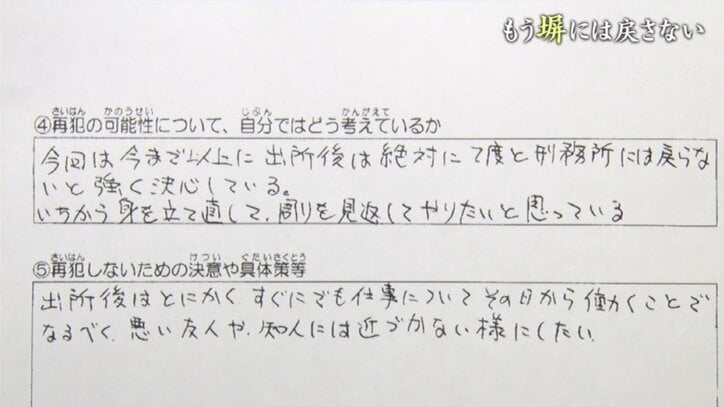 もう塀には戻さない
さいはん かのうせい じぶん かんがえて
④再犯の可能性について、自分ではどう考えているか
今回は今まで以上に出所後は絶対に2度と刑務所には戻らな
いと強く決心している。
いちから身を立て直して、周りを見返してやりたいと思っている
さいはん けつい ぐたいさくとう
⑤再犯しないための決意や具体策等
出所後はとにかく、すぐにでも仕事についてその日から働くことで
なるべく、悪い友人や、知人には近づかない様にしたい、